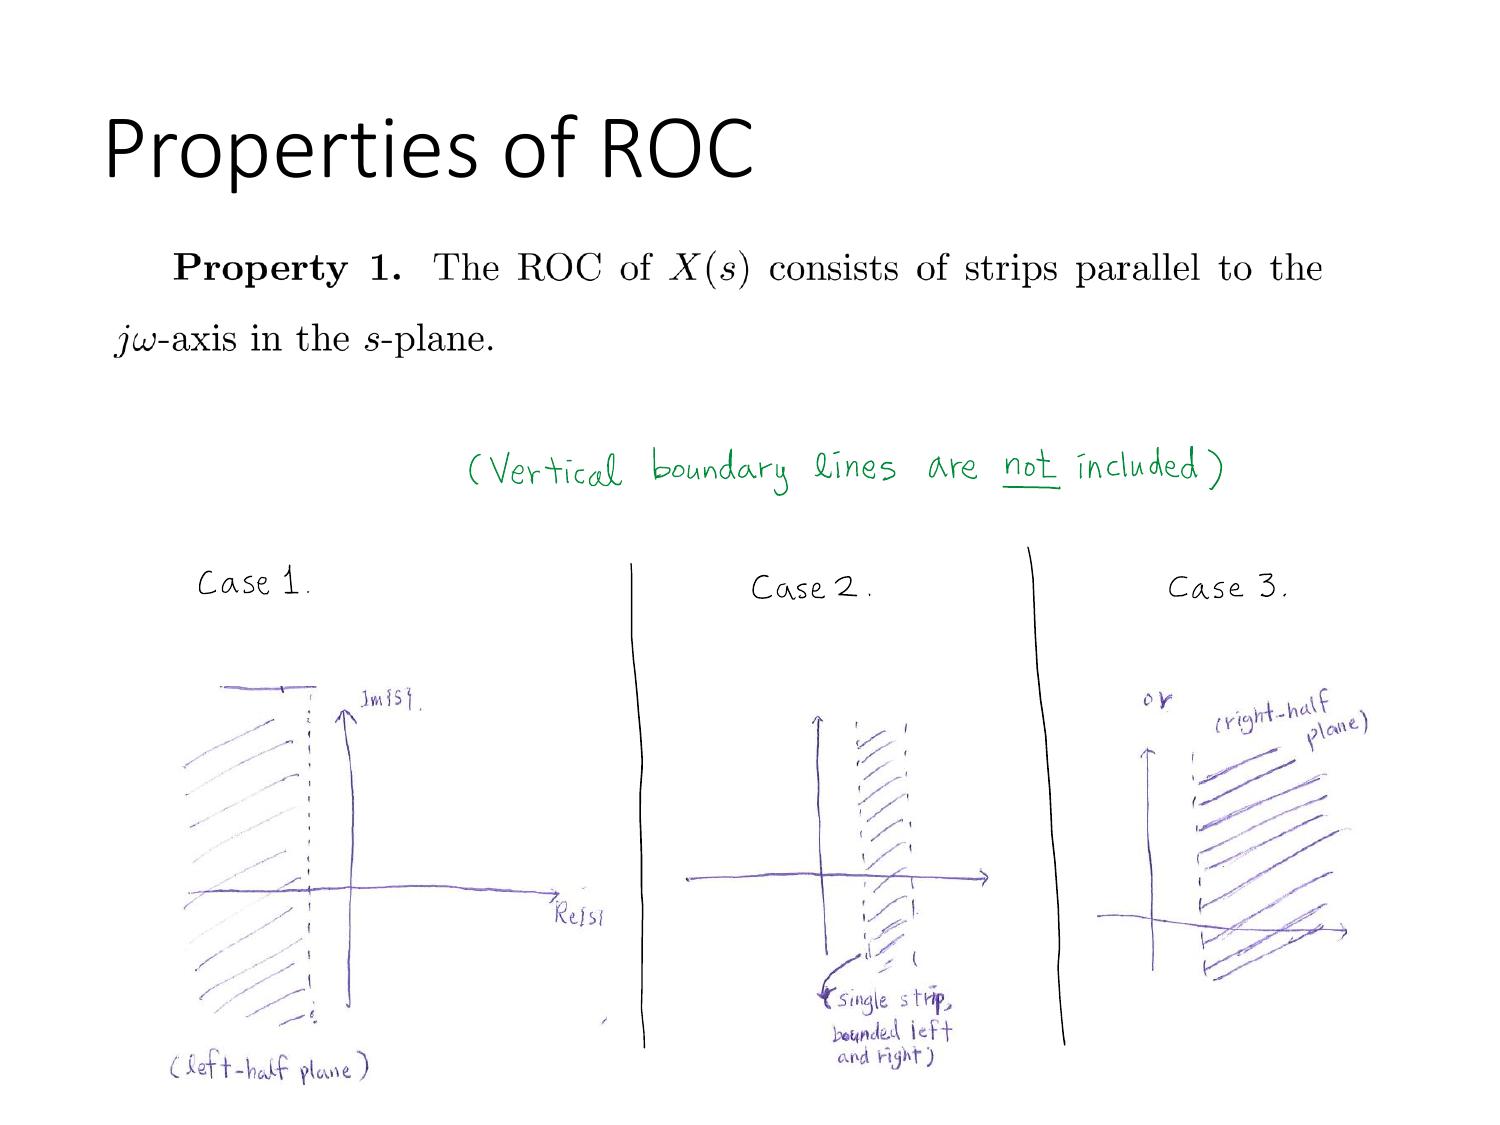 Properties of ROC
Property 1. The ROC of X(s) consists of strips parallel to the
jω-axis in the s-plane.
(Vertical boundary lines are not included)
Case 1.
Im{S}.
Re{s}
(left-half plane)
Case 2.
(single strip,
bounded left
and right)
Case 3.
or
(right-half
plane)